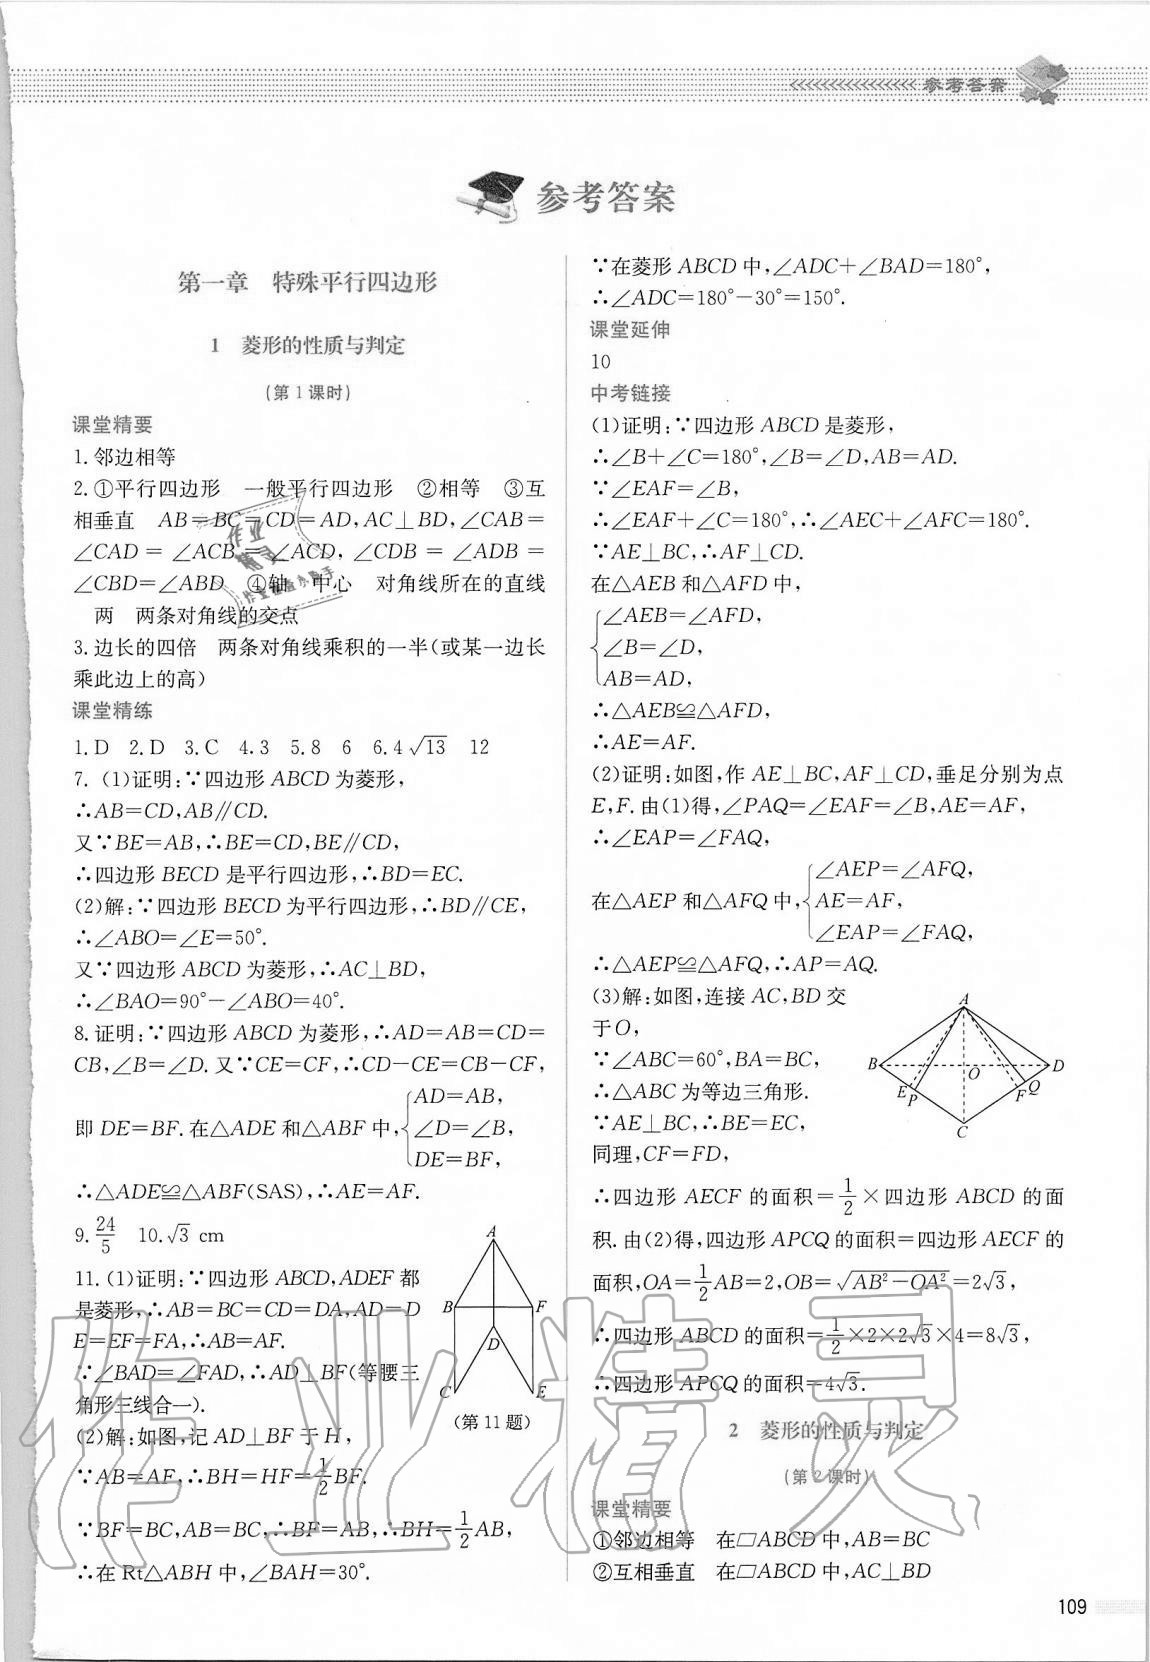 参考答案
参考答案
第一章　特殊平行四边形
1　菱形的性质与判定
(第1课时)
课堂精要
1.邻边相等
2.①平行四边形　一般平行四边形　②相等　③互
相垂直　AB=BC=CD=AD,AC⊥BD,∠CAB=
∠CAD=∠ACB=∠ACD,∠CDB=∠ADB=
∠CBD=∠ABD　④轴　中心　对角线所在的直线
两　两条对角线的交点
3.边长的四倍　两条对角线乘积的一半(或某一边长
乘此边上的高)
课堂精练
1.D　2.D　3.C　4.3　5.8　6　6.4√13　12
7.(1)证明:∵四边形ABCD为菱形,
∴AB=CD,AB∥CD.
又∵BE=AB,∴BE=CD,BE∥CD,
∴四边形BECD是平行四边形,∴BD=EC.
(2)解:∵四边形BECD为平行四边形,∴BD∥CE,
∴∠ABO=∠E=50°.
又∵四边形ABCD为菱形,∴AC⊥BD,
∴∠BAO=90°-∠ABO=40°.
8.证明:∵四边形ABCD为菱形,∴AD=AB=CD=
CB,∠B=∠D.又∵CE=CF,∴CD-CE=CB-CF,
即DE=BF.在△ADE和△ABF中,{AD=AB,
∠D=∠B,
DE=BF,
∴△ADE≌△ABF(SAS),∴AE=AF.
9.24/5　10.√3 cm
11.(1)证明:∵四边形ABCD,ADEF都
是菱形,∴AB=BC=CD=DA,AD=D
E=EF=FA,∴AB=AF.
∵∠BAD=∠FAD,∴AD⊥BF(等腰三
角形三线合一).
(2)解:如图,记AD⊥BF于H,
∵AB=AF,∴BH=HF=1/2BF.
∵BF=BC,AB=BC,∴BF=AB,∴BH=1/2AB,
∴在Rt△ABH中,∠BAH=30°.
A
B
F
D
C
E
(第11题)
∵在菱形ABCD中,∠ADC+∠BAD=180°,
∴∠ADC=180°-30°=150°.
课堂延伸
10
中考链接
(1)证明:∵四边形ABCD是菱形,
∴∠B+∠C=180°,∠B=∠D,AB=AD.
∵∠EAF=∠B,
∴∠EAF+∠C=180°,∴∠AEC+∠AFC=180°.
∵AE⊥BC,∴AF⊥CD.
在△AEB和△AFD中,
{∠AEB=∠AFD,
∠B=∠D,
AB=AD,
∴△AEB≌△AFD,
∴AE=AF.
(2)证明:如图,作AE⊥BC,AF⊥CD,垂足分别为点
E,F.由(1)得,∠PAQ=∠EAF=∠B,AE=AF,
∴∠EAP=∠FAQ,
在△AEP和△AFQ中,{∠AEP=∠AFQ,
AE=AF,
∠EAP=∠FAQ,
∴△AEP≌△AFQ,∴AP=AQ.
(3)解:如图,连接AC,BD交
于O,
∵∠ABC=60°,BA=BC,
∴△ABC为等边三角形.
∵AE⊥BC,∴BE=EC,
同理,CF=FD,
A
B
O
D
E
P
F
Q
C
∴四边形AECF的面积=1/2×四边形ABCD的面
积.由(2)得,四边形APCQ的面积=四边形AECF的
面积,OA=1/2AB=2,OB=√(AB²-OA²)=2√3,
∴四边形ABCD的面积=1/2×2×2√3×4=8√3,
∴四边形APCQ的面积=4√3.
2　菱形的性质与判定
(第2课时)
课堂精要
①邻边相等　在□ABCD中,AB=BC
②互相垂直　在□ABCD中,AC⊥BD
109
作业精灵